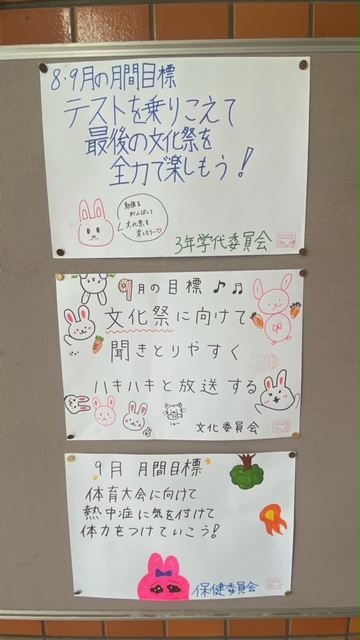 8・9月の月間目標
テストを乗りこえて
最後の文化祭を
全力で楽しもう!
勉強も
がんばって
文化祭を
楽しもう〜♡
3年学代委員会
9月の目標♪♫
文化祭に向けて
聞きとりやすく
ハキハキと放送する
文化委員会
9月 月間目標
体育大会に向けて
熱中症に気を付けて
体力をつけていこう!
保健委員会